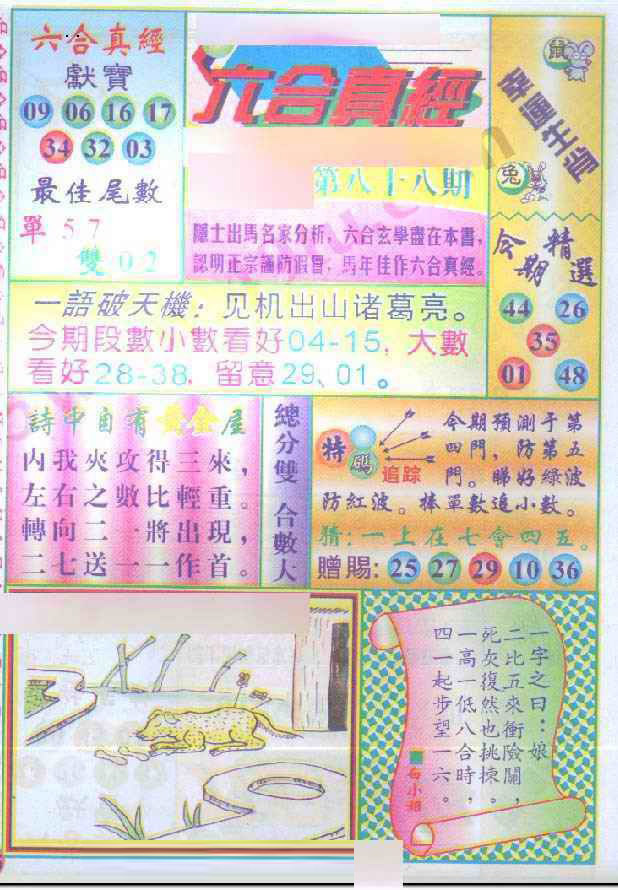 六合真經
獻寶
09 06 16 17
34 32 03
最佳尾數
單 5 7
雙 0 2
六合真經
第八十八期
隱士出馬名家分析，六合玄學盡在本書，
認明正宗謹防假冒，馬年佳作六合真經。
幸運生肖
鼠
兔
今期精選
44 26
35
01 48
一語破天機：见机出山诸葛亮。
今期段數小數看好04-15，大數
看好28-38，留意29、01。
詩中自有黃金屋
內我夾攻得三來，
左右之數比輕重。
轉向二一將出現，
二七送一一作首。
總分雙 合數大
特码
追踪
今期預測于第
四門，防第五
門。睇好綠波
防紅波。棒單數追小數。
猜：一上在七會四五。
贈賜：25 27 29 10 36
一字之曰：娘
二比五來衝險關，
死灰復然也挑揀。
一高一低八合時，
四一起步望一六。